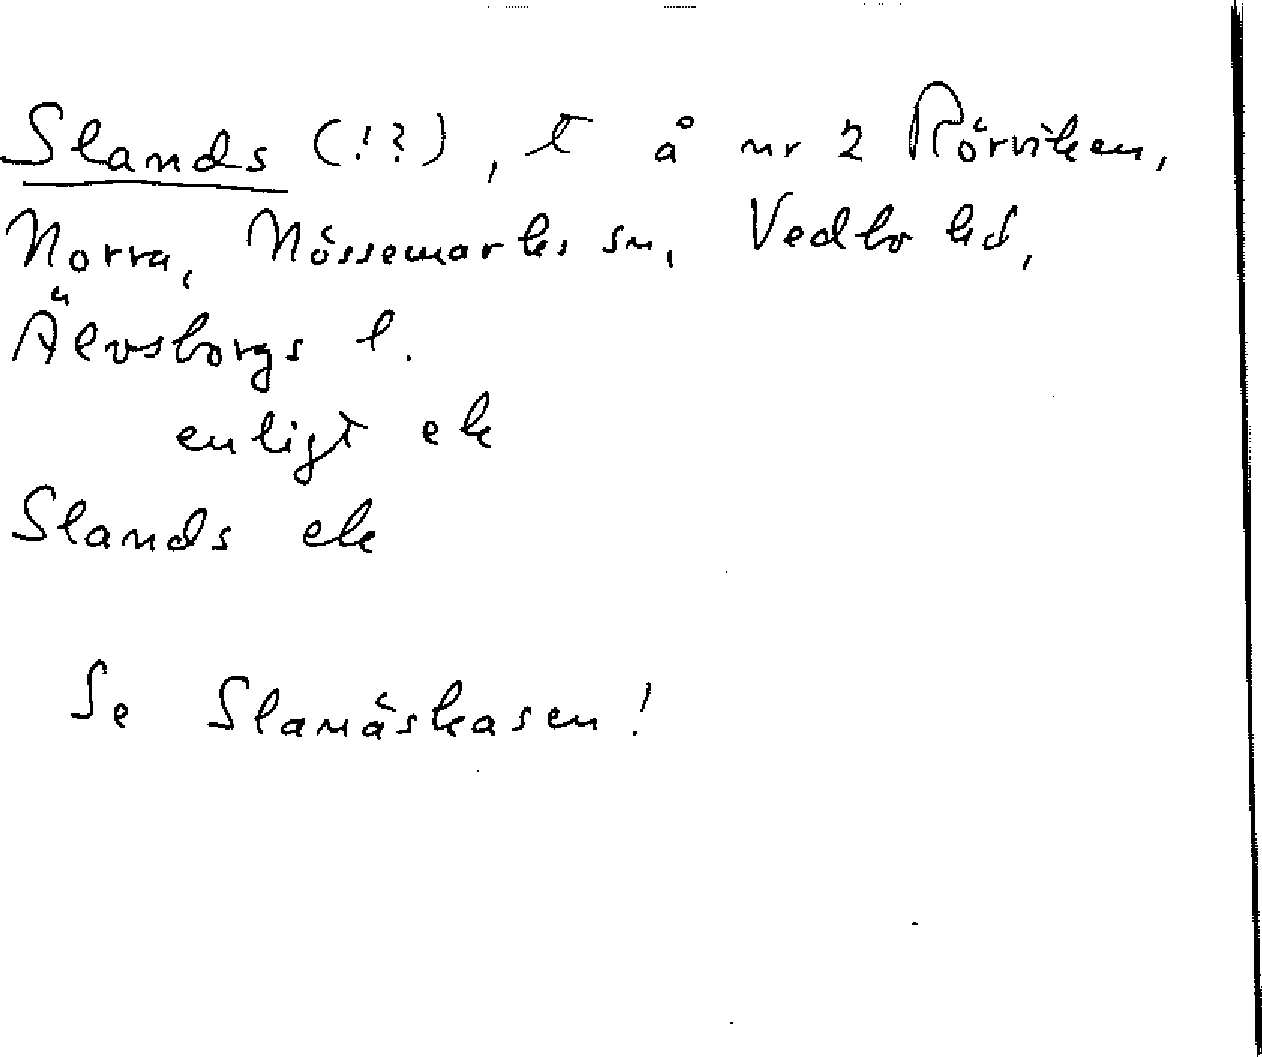 Slands (!?), t å nr 2 Rörviken,
Norra, Nössemarks sn, Vedbo hd,
Älvsborgs l.
enligt ek
Slands ek
Se Slanäskasen!